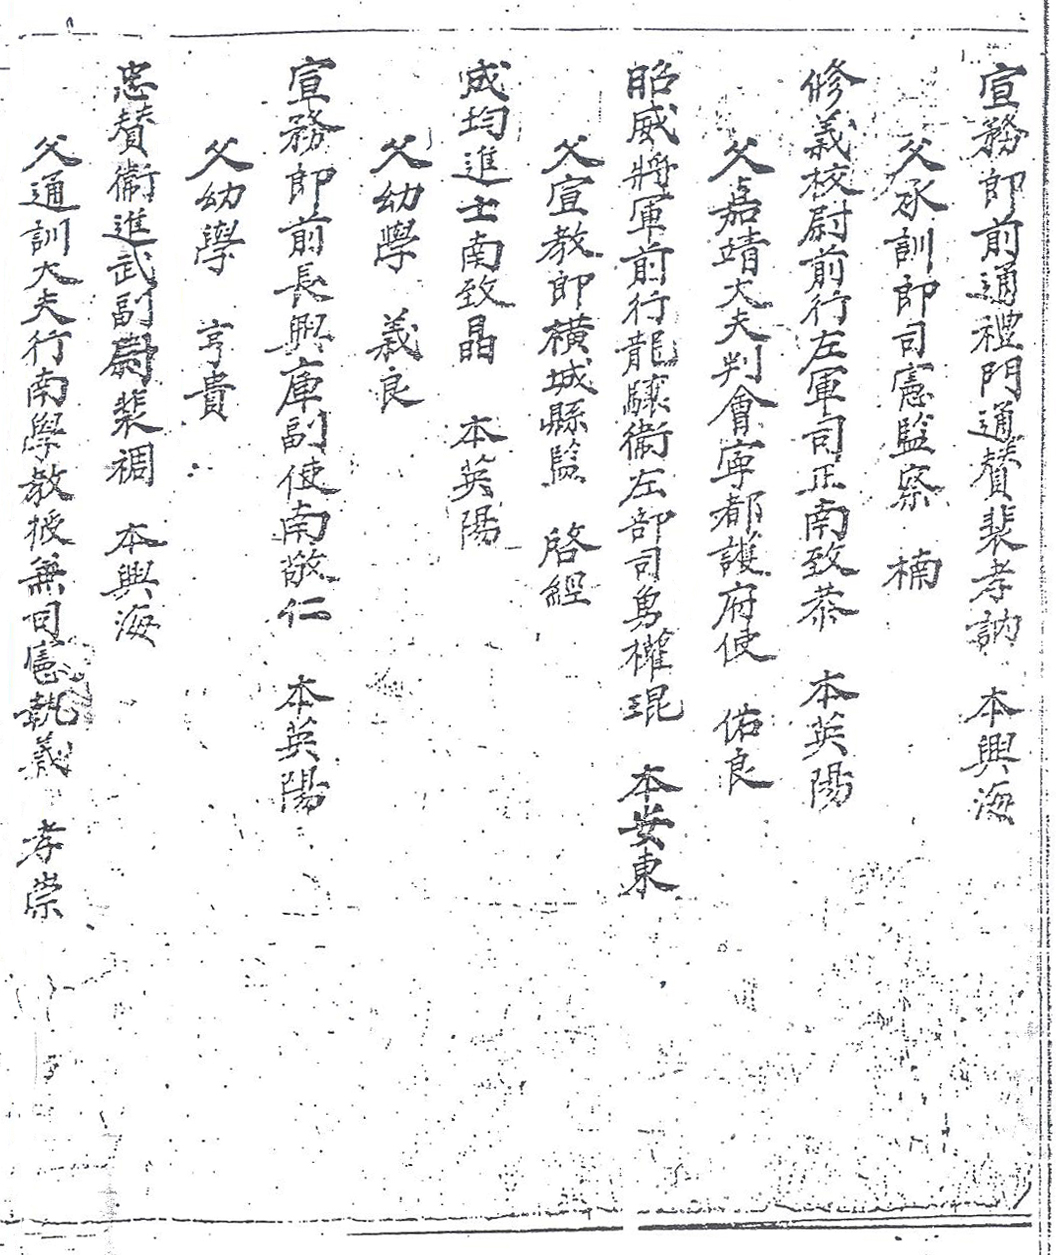 宣務郎前通禮門通贊裴孝訥 本興海
父承訓郎司憲監察 楠
修義校尉前行左軍司正南致恭 本英陽
父嘉靖大夫判會寧都護府使 佑良
昭威將軍前行龍驤衛左部司勇權琨 本安東
父宣教郎橫城縣監 啓經
成均進士南致晶 本英陽
父幼學 義良
宣務郎前長興庫副使南敬仁 本英陽
父幼學 亨貴
忠贊衛進武副尉裴裯 本興海
父通訓大夫行南學教授兼司憲執義 孝崇